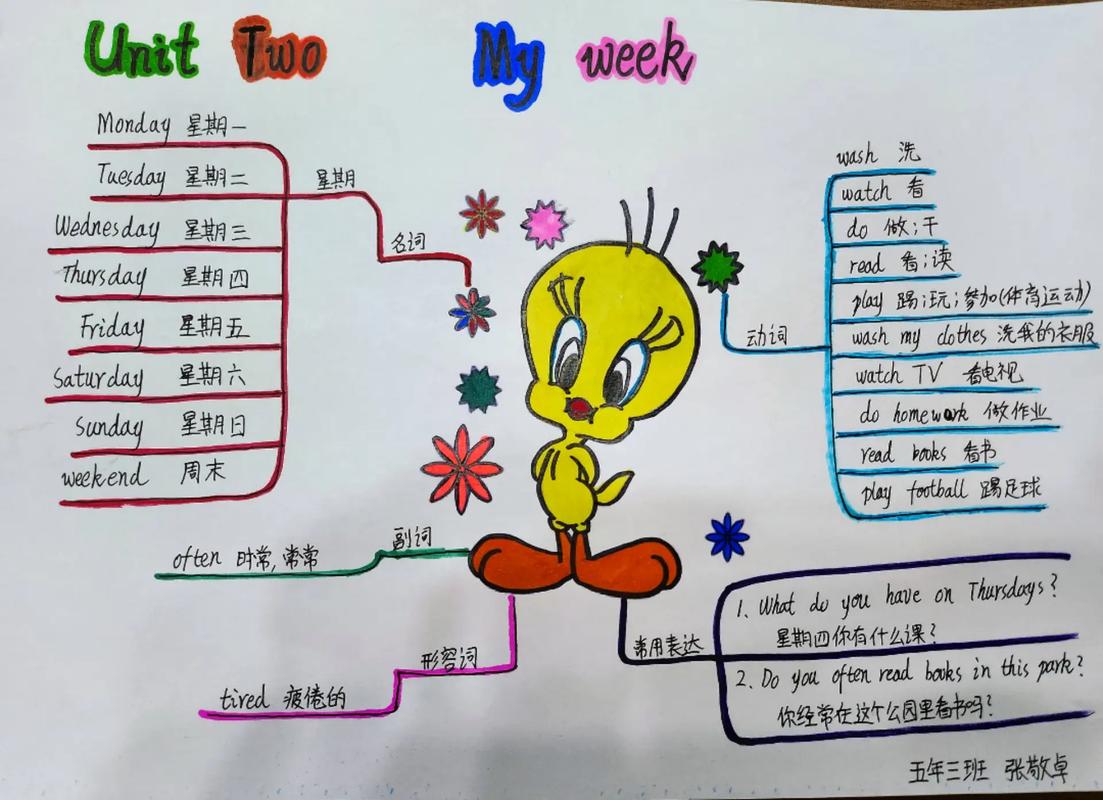 Unit Two My week
Monday 星期一
Tuesday 星期二
Wednesday 星期三
Thursday 星期四
Friday 星期五
Saturday 星期六
Sunday 星期日
weekend 周末
星期
名词
动词
wash 洗
watch 看
do 做;干
read 看;读
play 踢;玩;参加(体育运动)
wash my clothes 洗我的衣服
watch TV 看电视
do homework 做作业
read books 看书
play football 踢足球
副词
often 时常,常常
形容词
tired 疲倦的
常用表达
1、What do you have on Thursdays?
星期四你有什么课?
2、Do you often read books in this park?
你经常在这个公园里看书吗?
五年三班 张敬卓